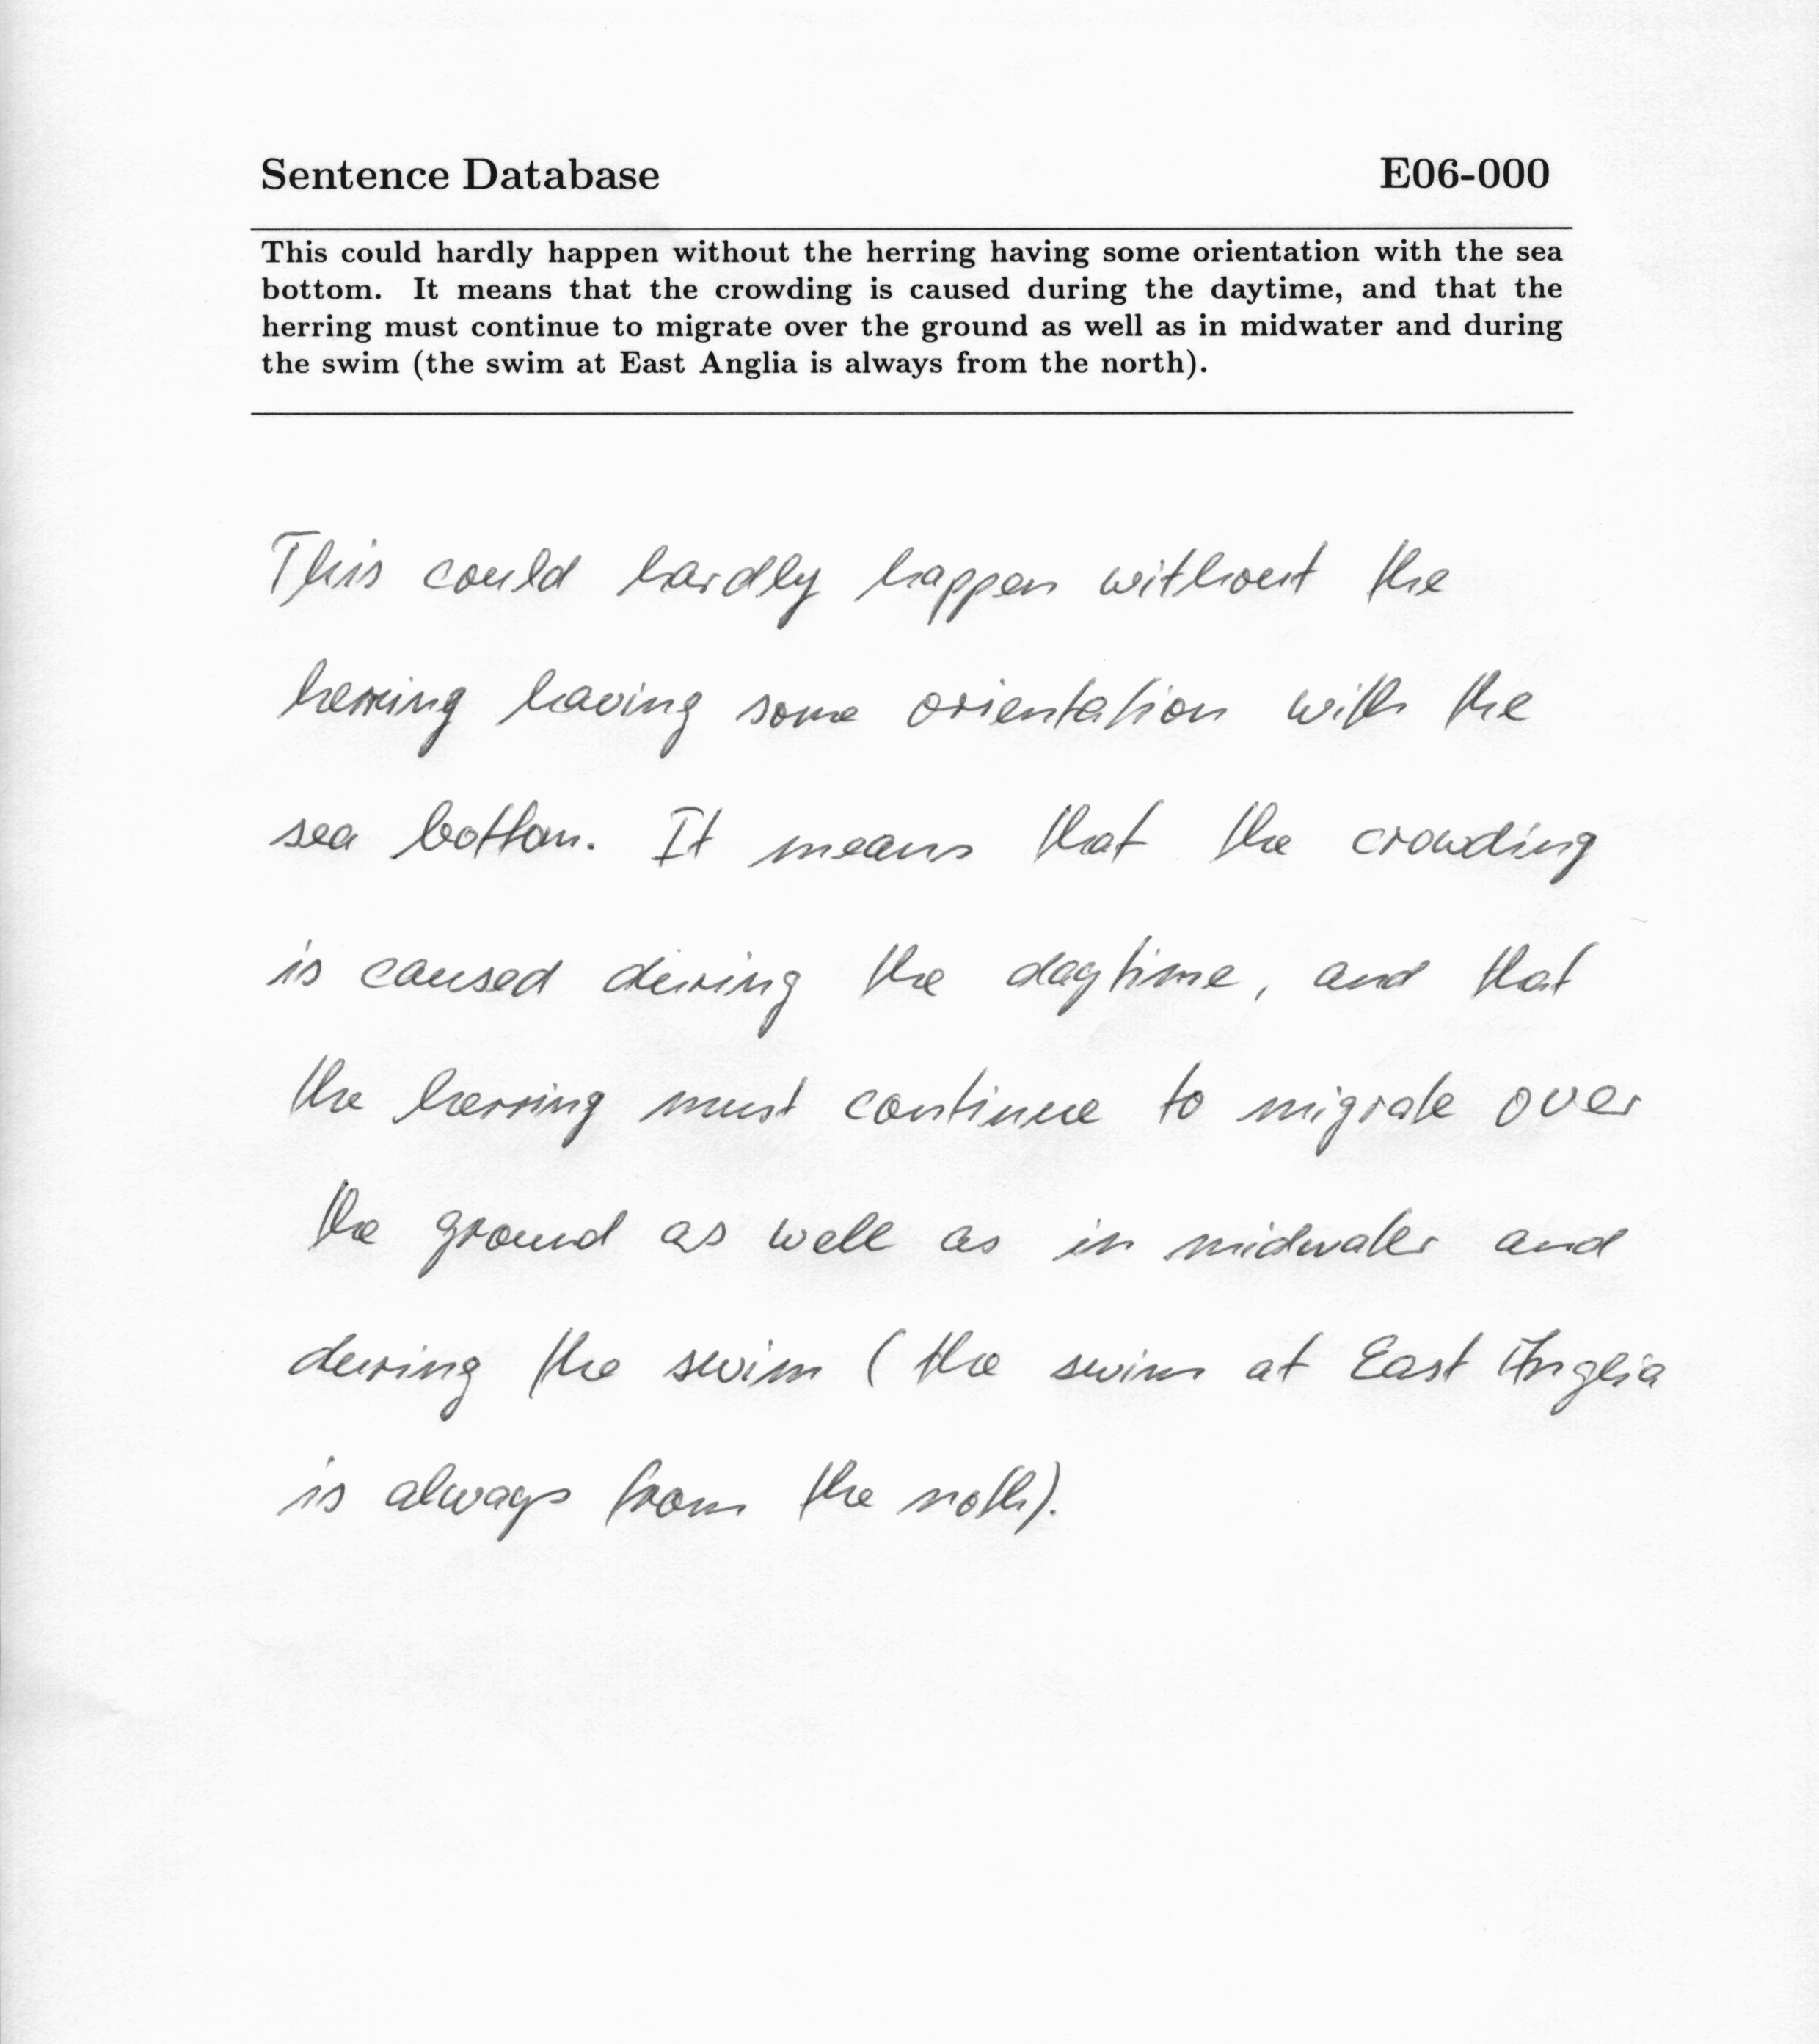 Sentence Database E06-000
This could hardly happen without the herring having some orientation with the sea
bottom. It means that the crowding is caused during the daytime, and that the
herring must continue to migrate over the ground as well as in midwater and during
the swim (the swim at East Anglia is always from the north).
This could hardly happen without the
herring having some orientation with the
sea bottom. It means that the crowding
is caused during the daytime, and that
the herring must continue to migrate over
the ground as well as in midwater and
during the swim (the swim at East Anglia
is always from the noth).